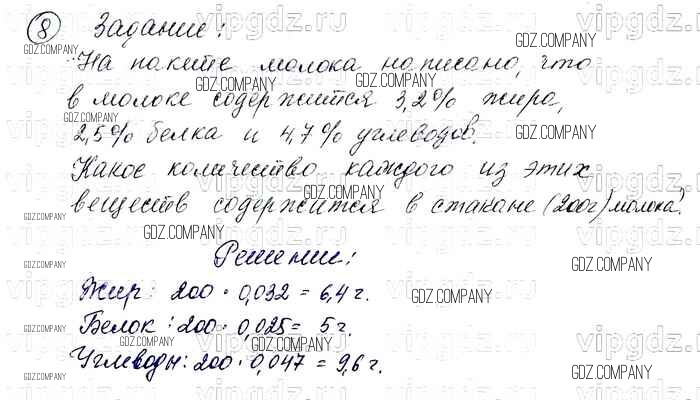 8 Задание:
На пакете молока написано, что
в молоке содержится 3,2% жира,
2,5% белка и 4,7% углеводов.
Какое количество каждого из этих
веществ содержится в стакане (200г) молока?
Решение:
Жир: 200 · 0,032 = 6,4 г.
Белок: 200 · 0,025 = 5 г.
Углеводы: 200 · 0,047 = 9,6 г.
GDZ.COMPANY
vipgdz.ru